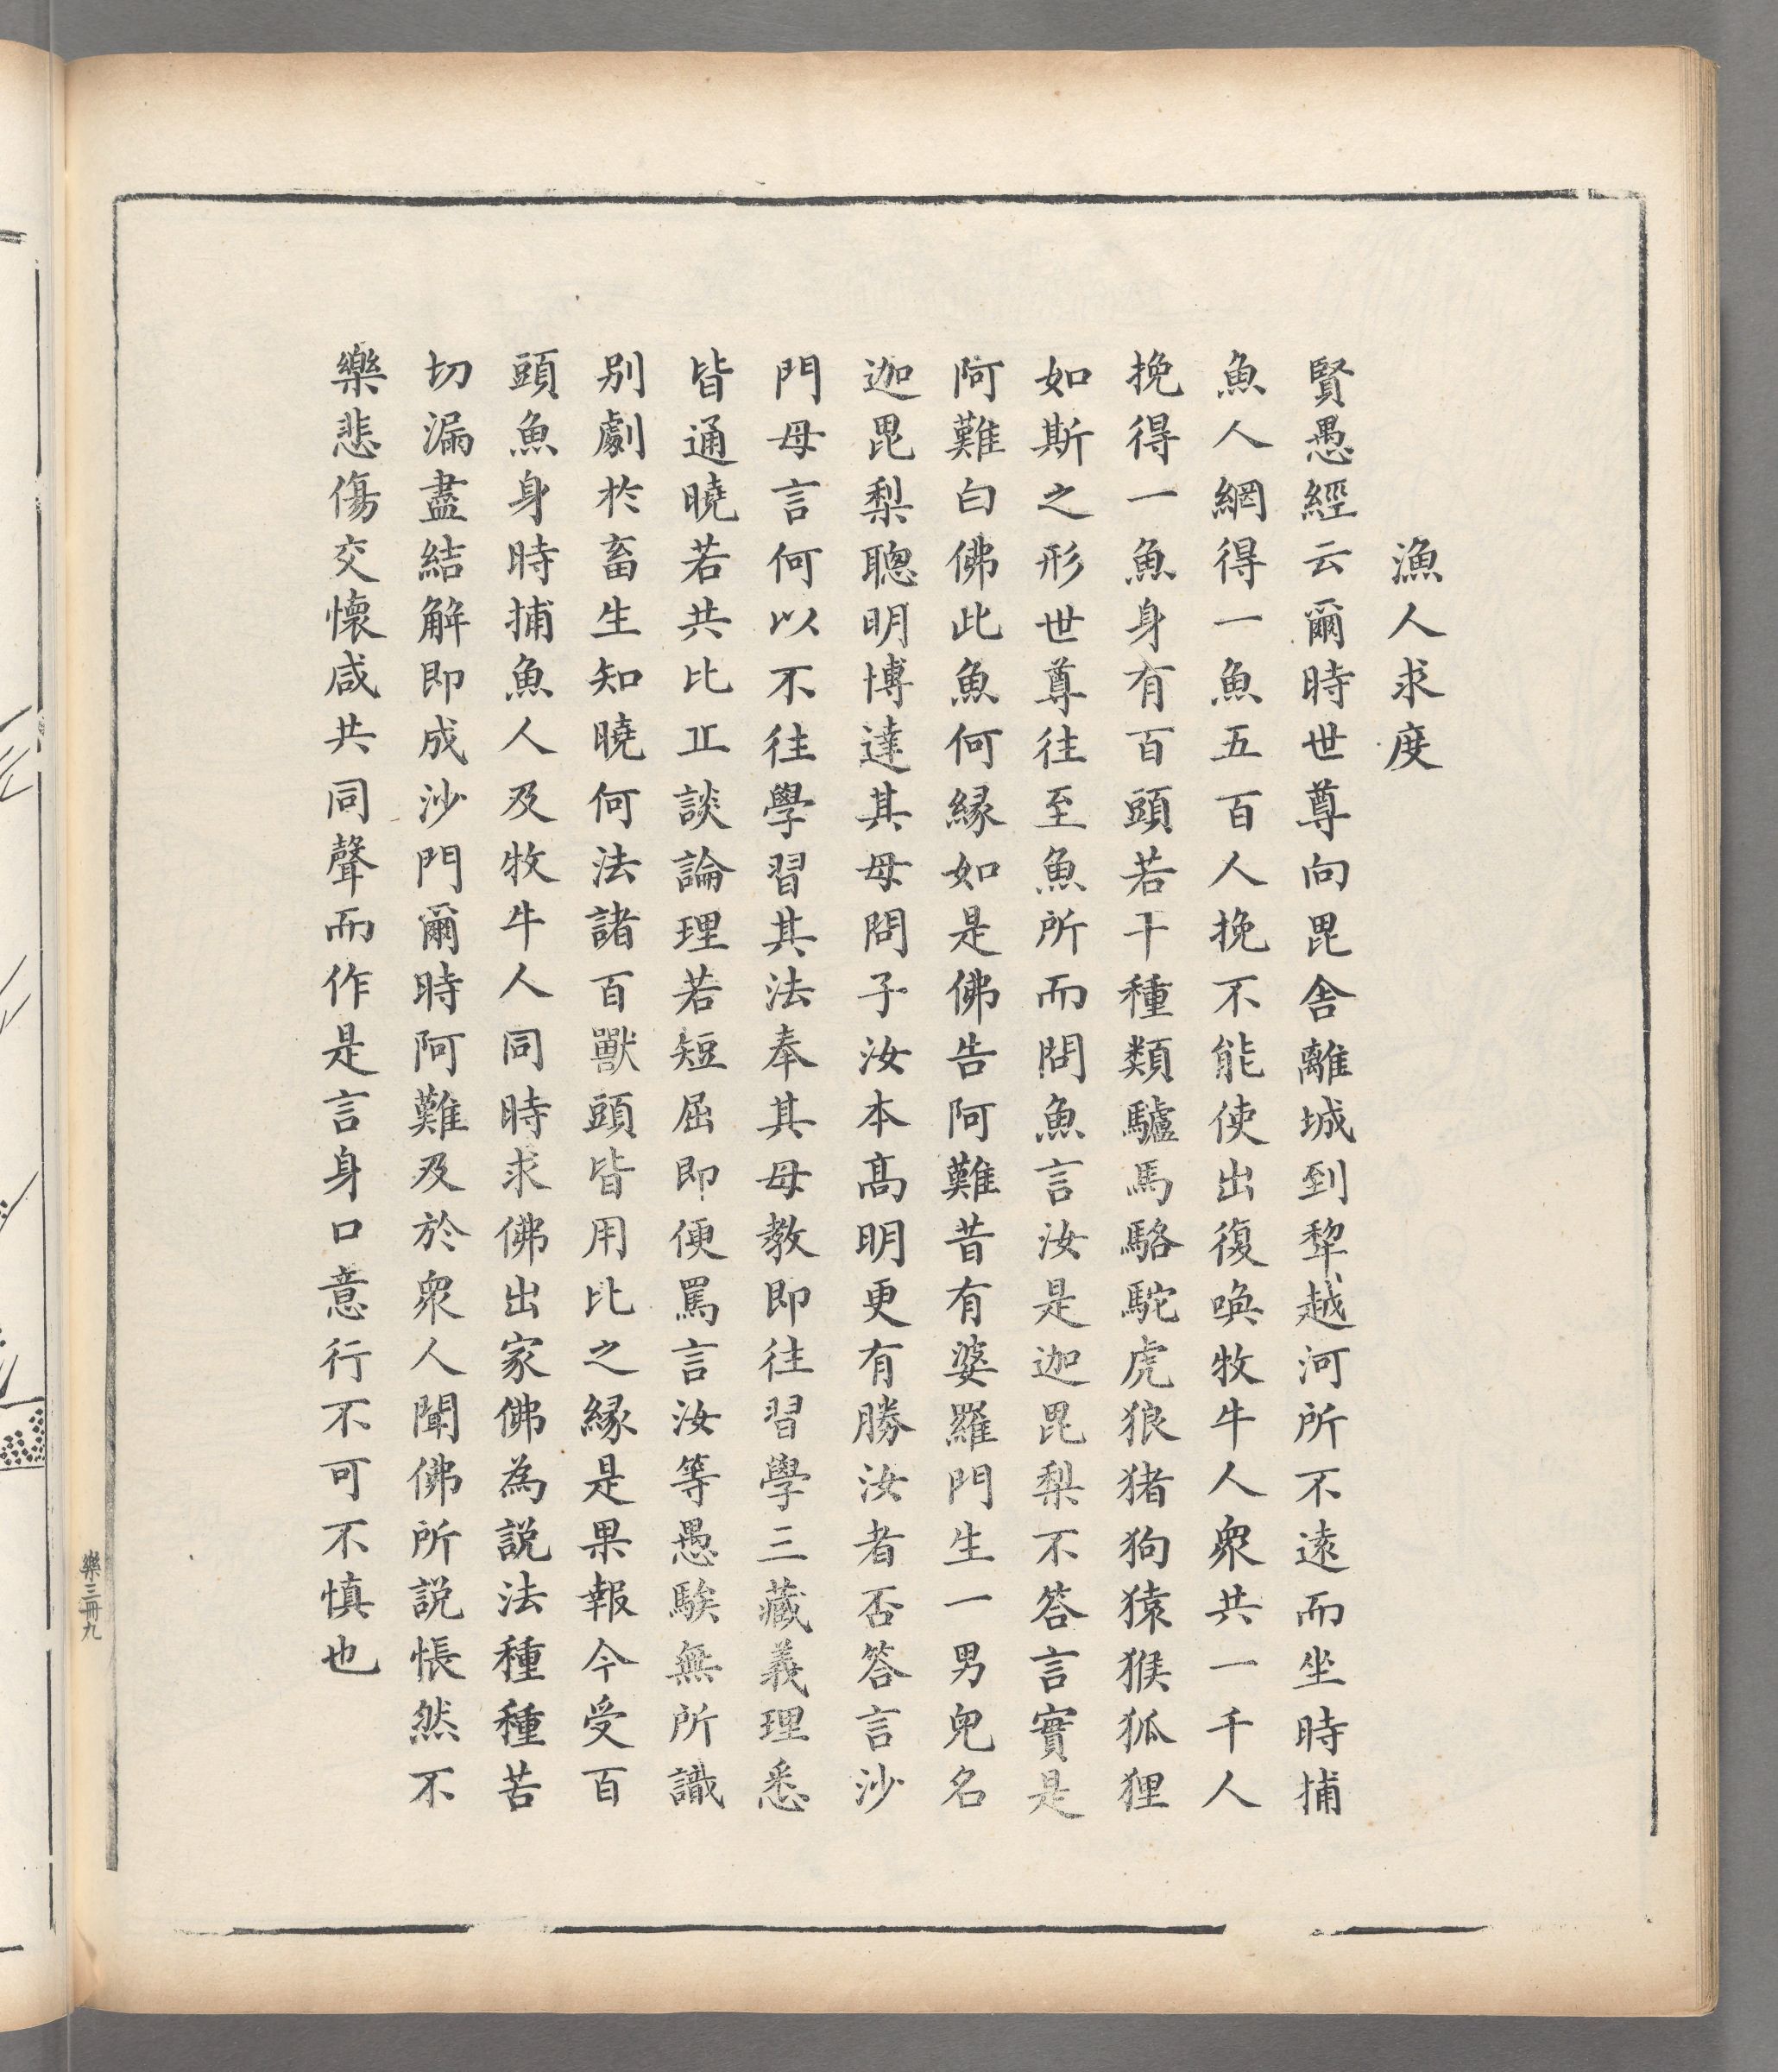 漁人求度
賢愚經云爾時世尊向毘舍離城到犂越河所不遠而坐時捕
魚人網得一魚五百人挽不能使出復喚牧牛人衆共一千人
挽得一魚身有百頭若干種類驢馬駱駝虎狼猪狗猿猴狐狸
如斯之形世尊往至魚所而問魚言汝是迦毘梨不答言實是
阿難白佛此魚何縁如是佛告阿難昔有婆羅門生一男兒名
迦毘梨聰明博達其母問子汝本髙明更有勝汝者否答言沙
門母言何以不往學習其法奉其母教即往習學三藏義理悉
皆通曉若共比丘談論理若短屈即便罵言汝等愚騃無所識
别劇於畜生知曉何法諸百獸頭皆用比之縁是果報今受百
頭魚身時捕魚人及牧牛人同時求佛出家佛為説法種種苦
切漏盡結解即成沙門爾時阿難及於衆人聞佛所説悵然不
樂悲傷交懷咸共同聲而作是言身口意行不可不慎也
樂三卌九